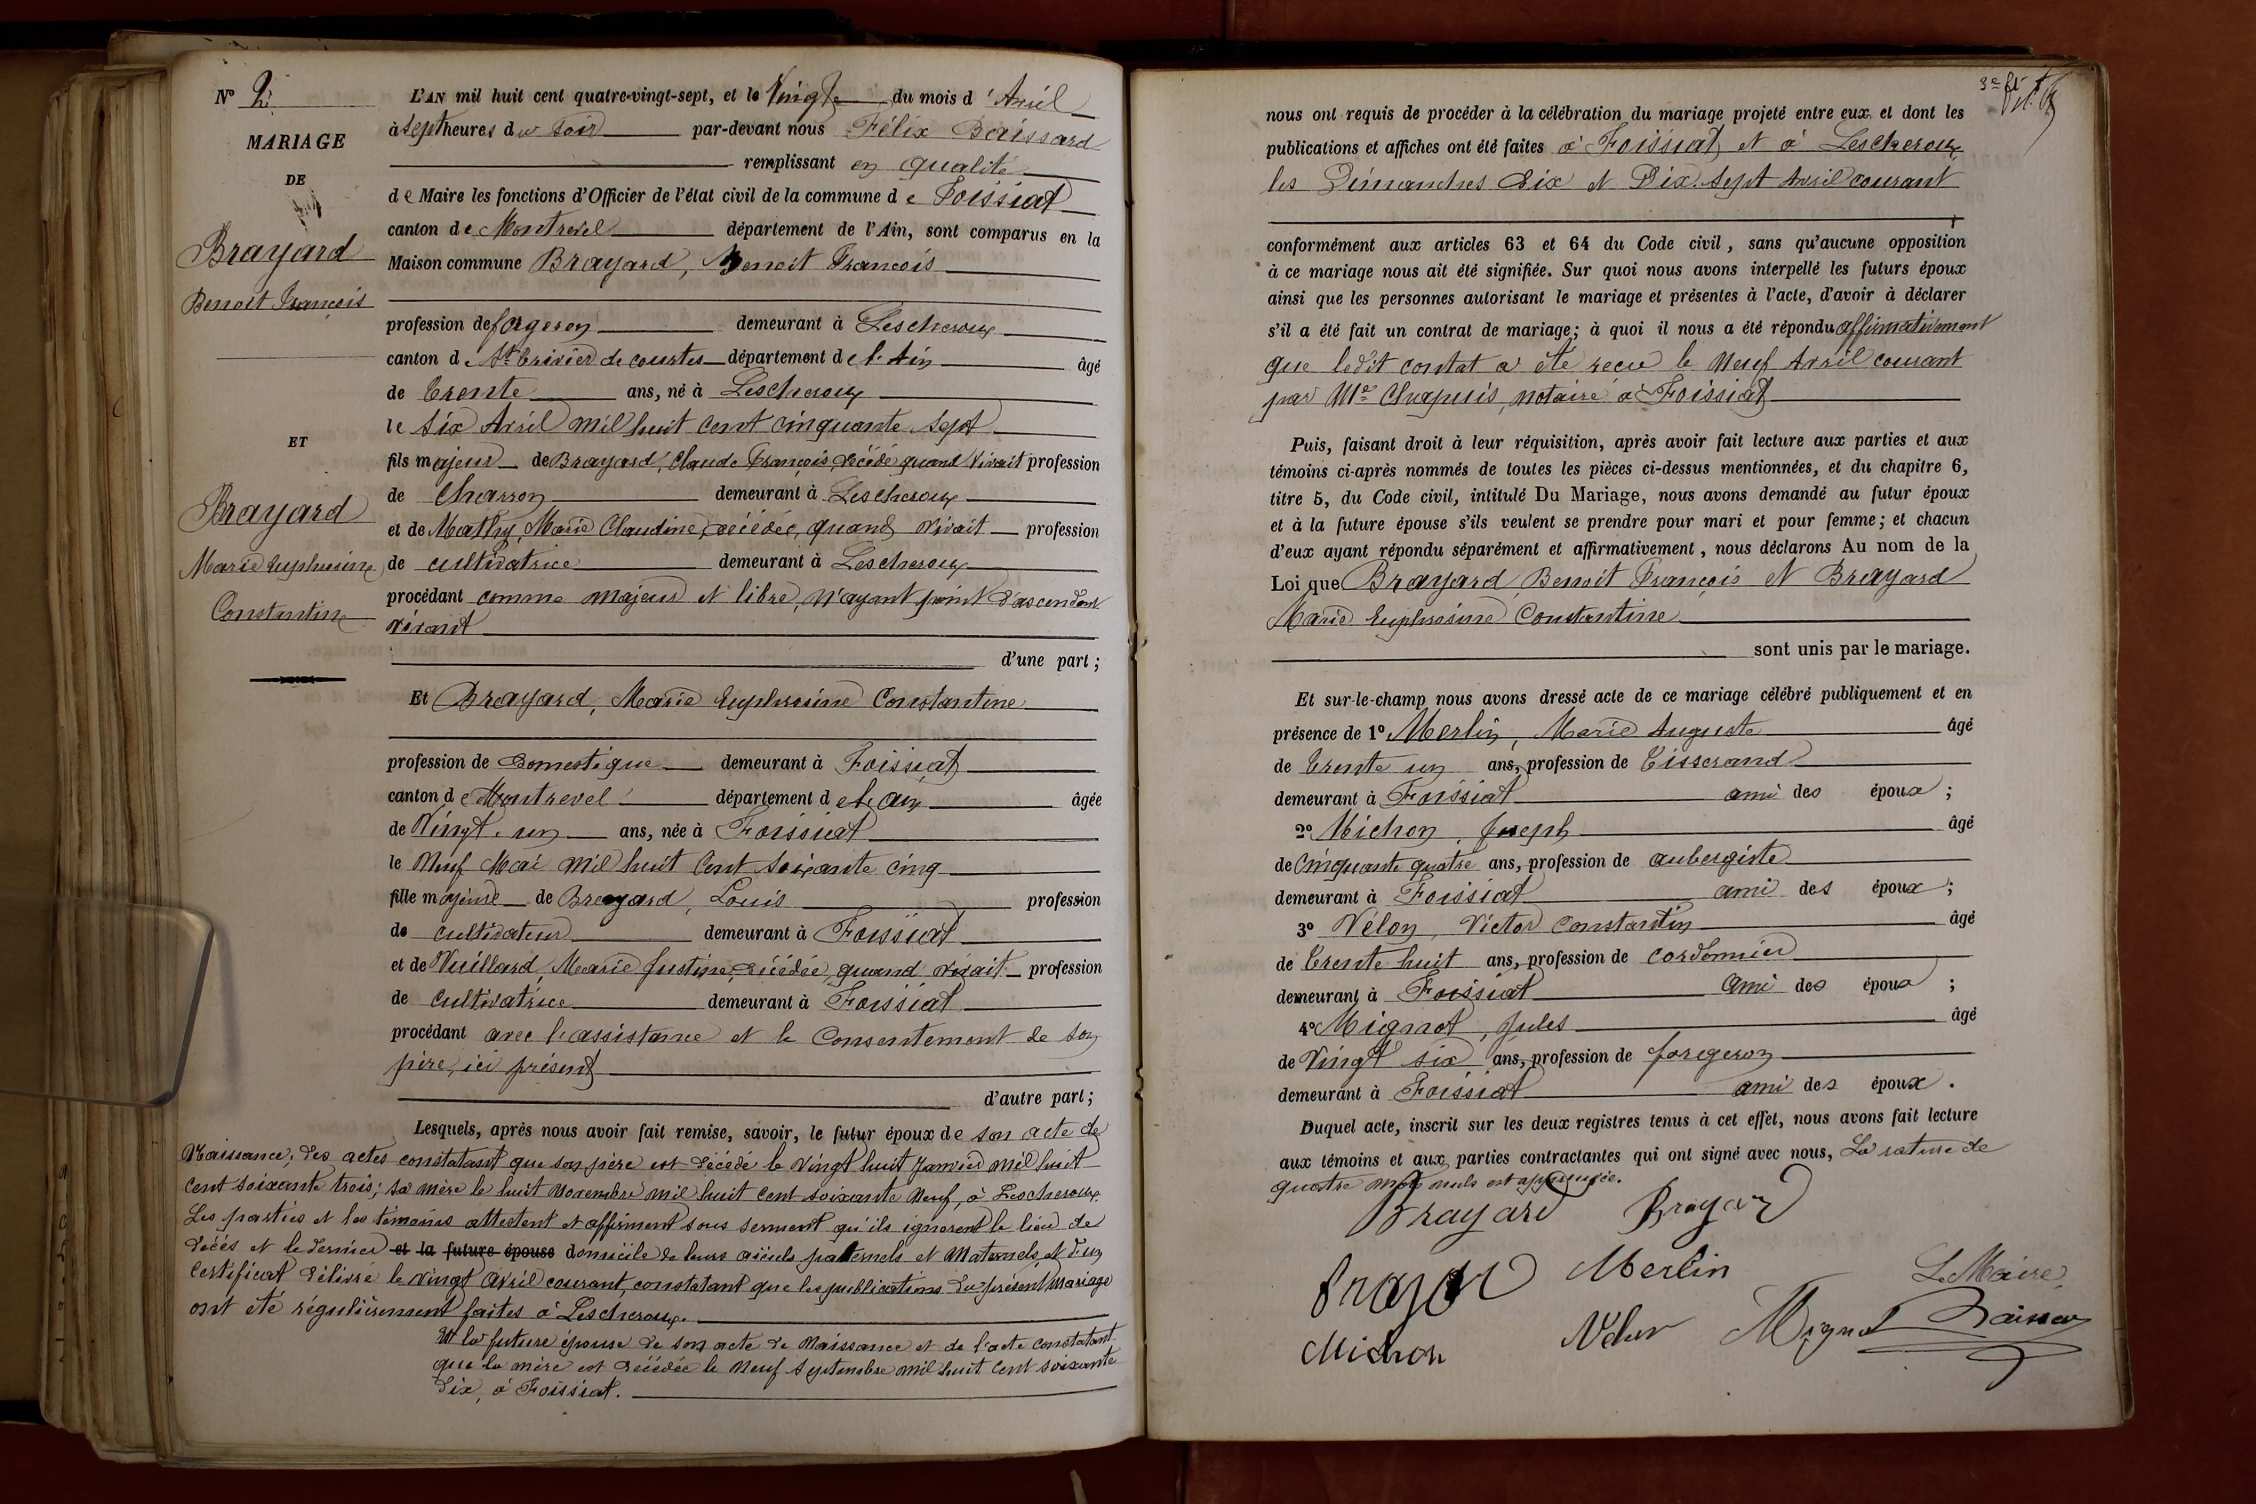 N° 2
MARIAGE
DE
Brayard
Benoit François
ET
Brayard
Marie Euphrosine
Constantine
L'AN mil huit cent quatre-vingt-sept, et le Vingt du mois d'Avril
à sept heures du soir par-devant nous Félix Boissard
remplissant en qualité
de Maire les fonctions d'Officier de l'état civil de la commune de Foissiat
canton de Montrevel département de l'Ain, sont comparus en la
Maison commune Brayard, Benoit François
profession de forgeron demeurant à Lescheroux
canton de St Trivier de courtes département de l'Ain âgé
de trente ans, né à Lescheroux
le six Avril mil huit cent cinquante sept
fils majeur de Brayard, Claude François, décédé quand vivait profession
de Charron demeurant à Lescheroux
et de Mathy, Marie Claudine, décédée, quand vivait profession
de cultivatrice demeurant à Lescheroux
procédant comme majeur et libre, n'ayant point d'ascendant
vivant
d'une part ;
Et Brayard, Marie Euphrosine Constantine
profession de domestique demeurant à Foissiat
canton de Montrevel département de l'ain âgée
de Vingt-un ans, née à Foissiat
le Neuf Mai mil huit cent soixante cinq
fille majeure de Brayard, Louis profession
de cultivateur demeurant à Foissiat
et de Vuillard, Marie Justine, décédée, quand vivait profession
de cultivatrice demeurant à Foissiat
procédant avec l'assistance et le Consentement de son
père, ici présent
d'autre part ;
Lesquels, après nous avoir fait remise, savoir, le futur époux de son acte de
Naissance; des actes constatant que son père est décédé le vingt huit Janvier mil huit
cent soixante trois; sa mère le huit Novembre mil huit cent soixante Neuf, à Lescheroux.
Les parties et les témoins attestent et affirment sous serment qu'ils ignorent le lieu de
décès et le dernier et la future épouse domicile de leurs aïeuls paternels et Maternels, et d'un
certificat délivré le vingt avril courant, constatant que les publications du présent mariage
ont été régulièrement faites à Lescheroux.
Et la future épouse de son acte de Naissance et de l'acte constatant
que la mère est décédée le Neuf Septembre mil huit cent soixante
dix, à Foissiat.
3e ft
nous ont requis de procéder à la célébration du mariage projeté entre eux et dont les
publications et affiches ont été faites à Foissiat et à Lescheroux
les Dimanches Dix et Dix-sept Avril courant
conformément aux articles 63 et 64 du Code civil, sans qu'aucune opposition
à ce mariage nous ait été signifiée. Sur quoi nous avons interpellé les futurs époux
ainsi que les personnes autorisant le mariage et présentes à l'acte, d'avoir à déclarer
s'il a été fait un contrat de mariage; à quoi il nous a été répondu affirmativement
que ledit contat a été recu le Neuf Avril courant
par Me Chapuis, notaire à Foissiat
Puis, faisant droit à leur réquisition, après avoir fait lecture aux parties et aux
témoins ci-après nommés de toutes les pièces ci-dessus mentionnées, et du chapitre 6,
titre 5, du Code civil, intitulé Du Mariage, nous avons demandé au futur époux
et à la future épouse s'ils veulent se prendre pour mari et pour femme; et chacun
d'eux ayant répondu séparément et affirmativement, nous déclarons Au nom de la
Loi que Brayard, Benoit François et Brayard
Marie Euphrosine Constantine
sont unis par le mariage.
Et sur-le-champ nous avons dressé acte de ce mariage célébré publiquement et en
présence de 1° Merlin, Marie Auguste âgé
de trente un ans, profession de Tisserand
demeurant à Foissiat ami des époux ;
2° Michon, Joseph âgé
de Cinquante quatre ans, profession de aubergiste
demeurant à Foissiat ami des époux ;
3° Vélon, Victor Constantin âgé
de Trente huit ans, profession de cordonnier
demeurant à Foissiat ami des époux ;
4° Mignot, Jules âgé
de Vingt six ans, profession de foregeron
demeurant à Foissiat ami des époux.
Duquel acte, inscrit sur les deux registres tenus à cet effet, nous avons fait lecture
aux témoins et aux parties contractantes qui ont signé avec nous, La rature de
quatre mots nuls est approuvée.
Brayard Brayard
Brayard Merlin Le Maire
Michon Velon Mignot Boissard